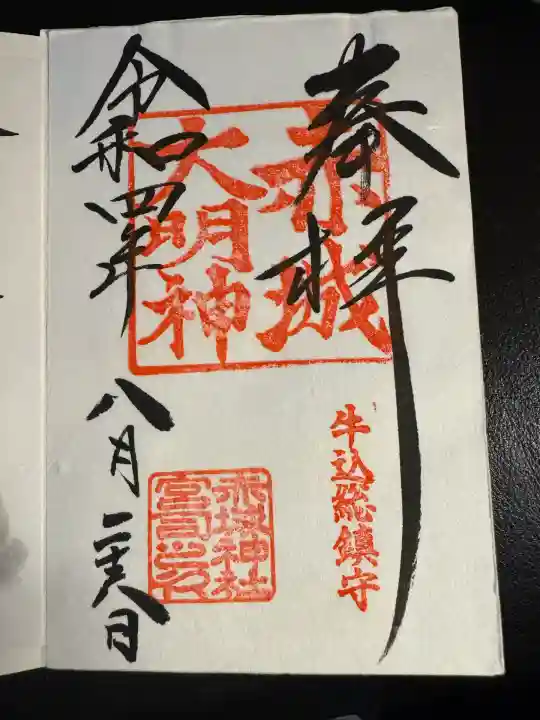 奉拝
赤城
大明神
牛込総鎮守
令和四年
八月二十八日
赤城神社
宮司之印